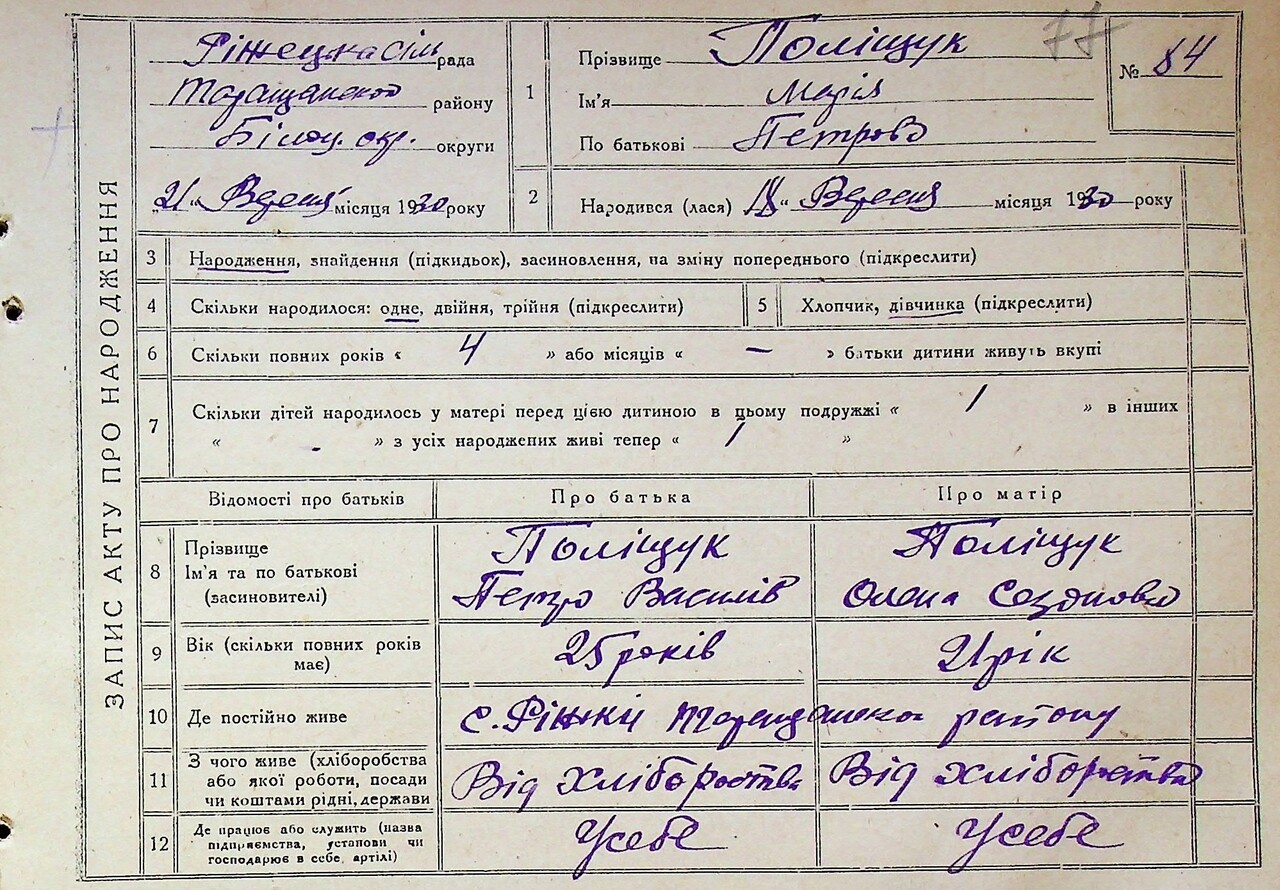 77
Ріжецька сіль рада
Таращанского району
Білоц. окр. округи
„21" Вересня місяця 1930 року
1
Прізвище Поліщук
Ім'я Марія
По батькові Петрова
№ 84
2
Народився (лася) „ " Вересня місяця 1930 року
ЗАПИС АКТУ ПРО НАРОДЖЕННЯ
3 Народження, знайдення (підкидьок), засиновлення, на зміну попереднього (підкреслити)
4 Скільки народилося: одне, двійня, трійня (підкреслити)
5 Хлопчик, дівчинка (підкреслити)
6 Скільки повних років « 4 » або місяців « — » батьки дитини живуть вкупі
7 Скільки дітей народилось у матері перед цією дитиною в цьому подружжі « 1 » в інших
« - » з усіх народжених живі тепер « 1 »
Відомості про батьків Про батька Про матір
8 Прізвище Поліщук Поліщук
Ім'я та по батькові Петро Василів Олена Созонова
(засиновителі)
9 Вік (скільки повних років 25 років 21 рік
має)
10 Де постійно живе с. Ріжки Таращанськ району
11 З чого живе (хліборобства
або якої роботи, посади Від хліборобства Від хліборобства
чи коштами рідні, держави
12 Де працює або служить (назва
підприємства, установи чи Усебе Усебе
господарює в себе, артілі)